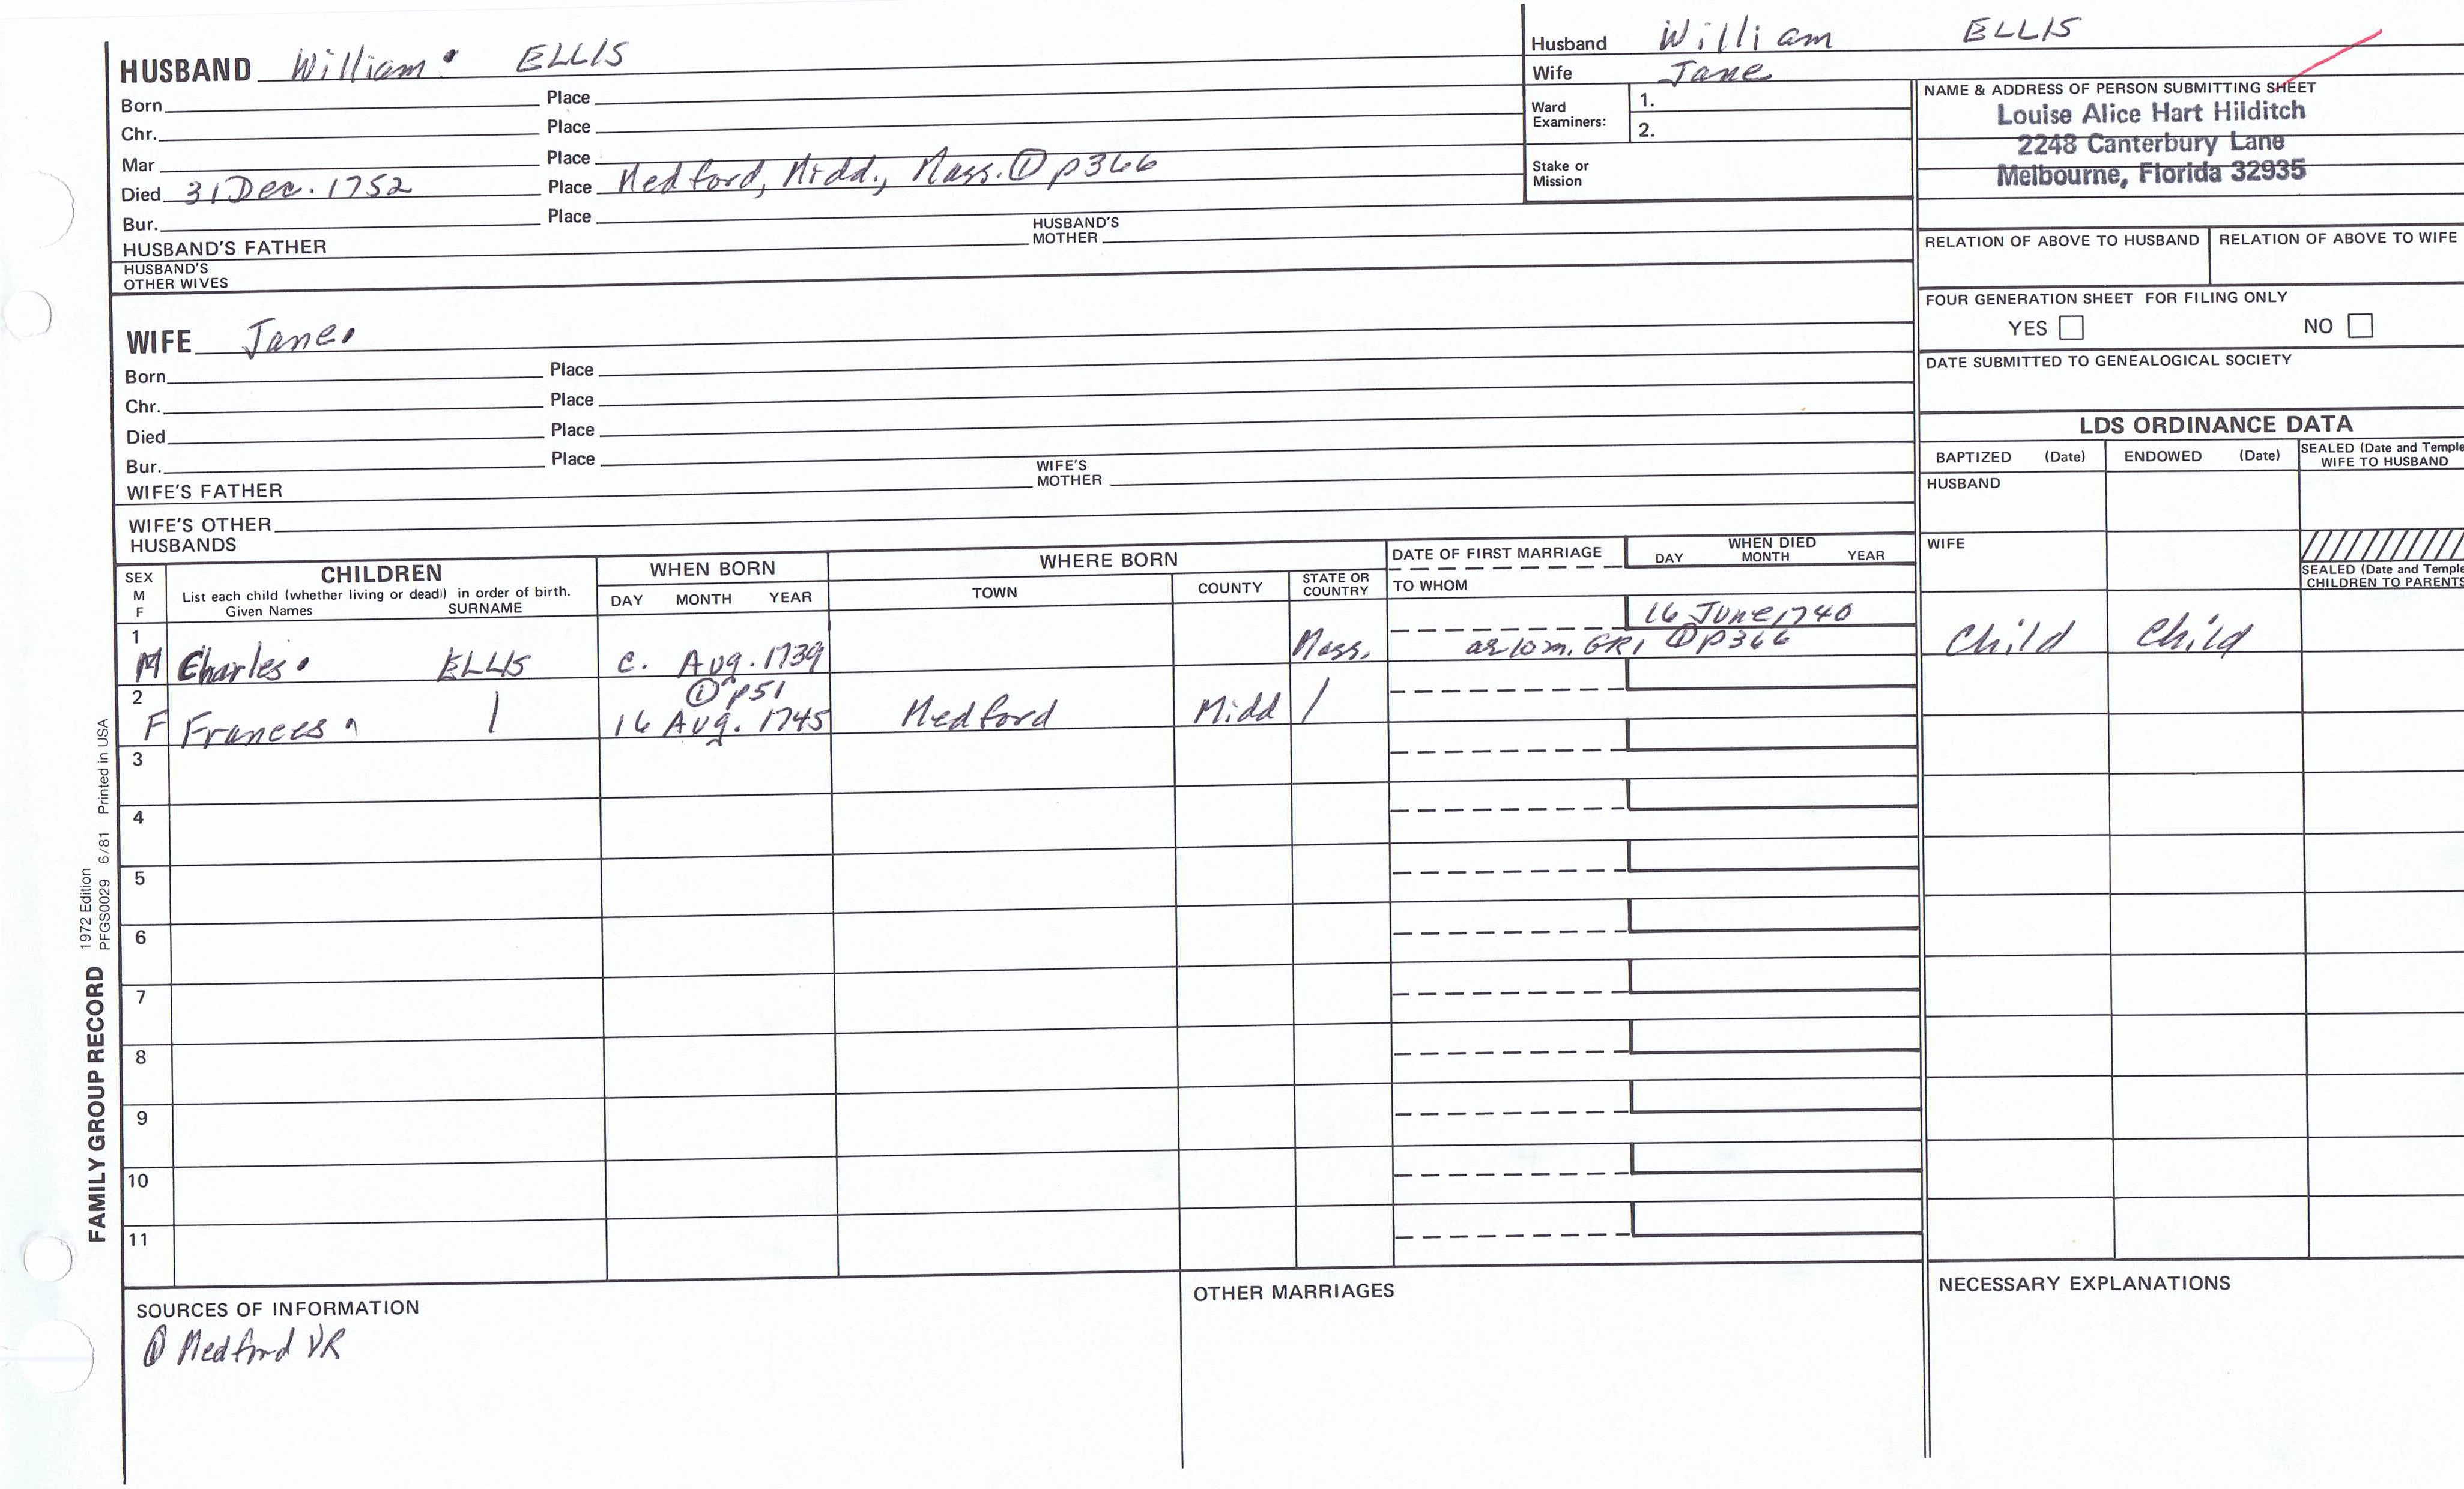 HUSBAND William ELLIS
Born Place
Chr. Place
Mar Place
Died 31 Dec. 1752 Place Medford, Midd., Mass. ① p366
Bur. Place
HUSBAND'S FATHER HUSBAND'S MOTHER
HUSBAND'S OTHER WIVES
WIFE Jane
Born Place
Chr. Place
Died Place
Bur. Place
WIFE'S FATHER WIFE'S MOTHER
WIFE'S OTHER HUSBANDS
Husband William ELLIS
Wife Jane
Ward Examiners: 1.
2.
Stake or Mission
NAME & ADDRESS OF PERSON SUBMITTING SHEET
Louise Alice Hart Hilditch
2248 Canterbury Lane
Melbourne, Florida 32935
RELATION OF ABOVE TO HUSBAND RELATION OF ABOVE TO WIFE
FOUR GENERATION SHEET FOR FILING ONLY
YES NO
DATE SUBMITTED TO GENEALOGICAL SOCIETY
LDS ORDINANCE DATA
BAPTIZED (Date) ENDOWED (Date) SEALED (Date and Temple WIFE TO HUSBAND
HUSBAND
WIFE
SEALED (Date and Temple CHILDREN TO PARENTS
SEX M F
CHILDREN
List each child (whether living or dead) in order of birth.
Given Names SURNAME
WHEN BORN
DAY MONTH YEAR
WHERE BORN
TOWN COUNTY STATE OR COUNTRY
DATE OF FIRST MARRIAGE
TO WHOM
WHEN DIED
DAY MONTH YEAR
16 June 1740
1 M Charles ELLIS c. Aug. 1739 Mass. ae 10 m. GR1 ① p366 Child Child
① p51
2 F Frances | 16 Aug. 1745 Medford Midd /
3
4
5
6
7
8
9
10
11
SOURCES OF INFORMATION
① Medford VR
OTHER MARRIAGES
NECESSARY EXPLANATIONS
FAMILY GROUP RECORD
1972 Edition
PFGS0029 6/81 Printed in USA